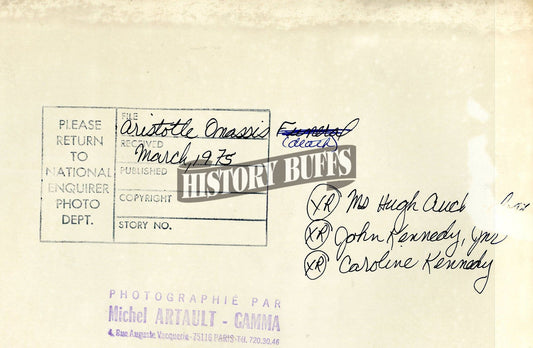 PLEASE
RETURN
TO
NATIONAL
ENQUIRER
PHOTO
DEPT.
FILE
Aristotle Onassis Funeral
(death)
RECEIVED
March, 1975
PUBLISHED
HISTORY BUFFS
COPYRIGHT
STORY NO.
XR Ms Hugh
XR John Kennedy, Jnr
XR Caroline Kennedy
PHOTOGRAPHIÉ PAR
Michel ARTAULT - GAMMA
4, Rue Auguste Vacquerie - 75116 PARIS - Tél. 720.30.46